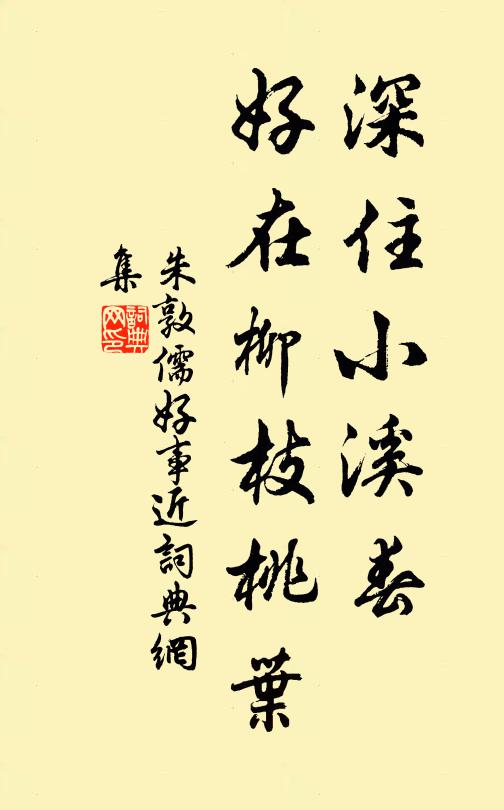 深住小溪春
好在柳枝桃葉
朱敦儒好事近詞典網
集
詞典
网印